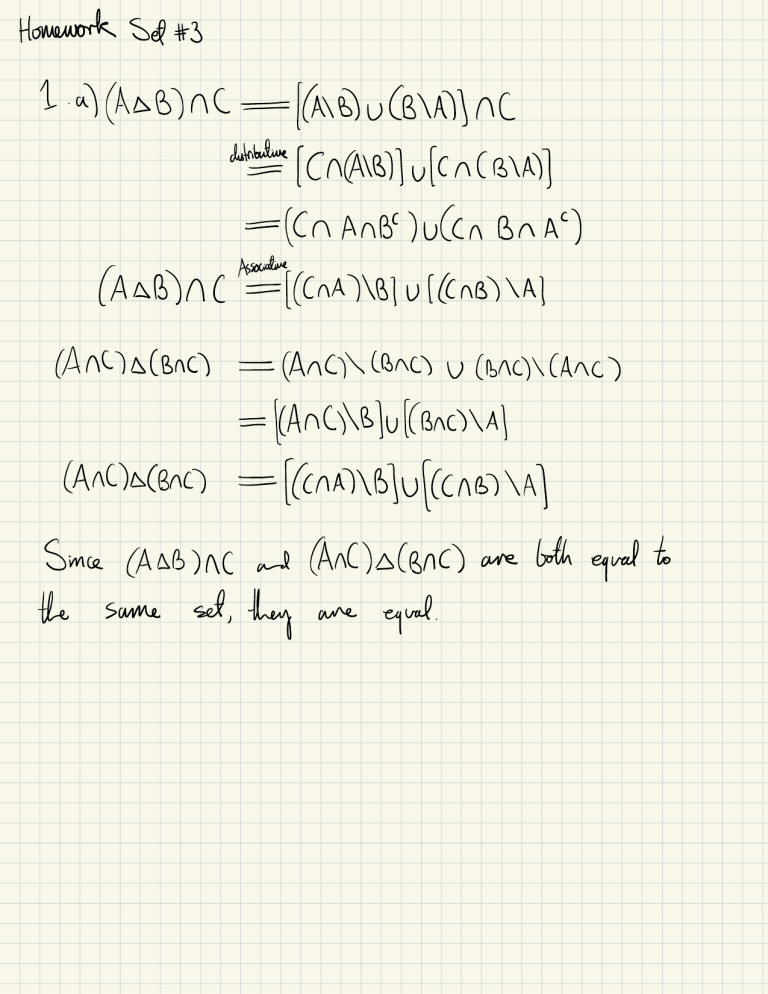 Homework Set #3
1. a) (A∆B)∩C = [(A\B)∪(B\A)]∩C
distributive = [C∩(A\B)]∪[C∩(B\A)]
= (C∩A∩Bᶜ)∪(C∩B∩Aᶜ)
(A∆B)∩C Associative = [(C∩A)\B]∪[(C∩B)\A]
(A∩C)∆(B∩C) = (A∩C)\(B∩C) ∪ (B∩C)\(A∩C)
= [(A∩C)\B]∪[(B∩C)\A]
(A∩C)∆(B∩C) = [(C∩A)\B]∪[(C∩B)\A]
Since (A∆B)∩C and (A∩C)∆(B∩C) are both equal to
the same set, they are equal.